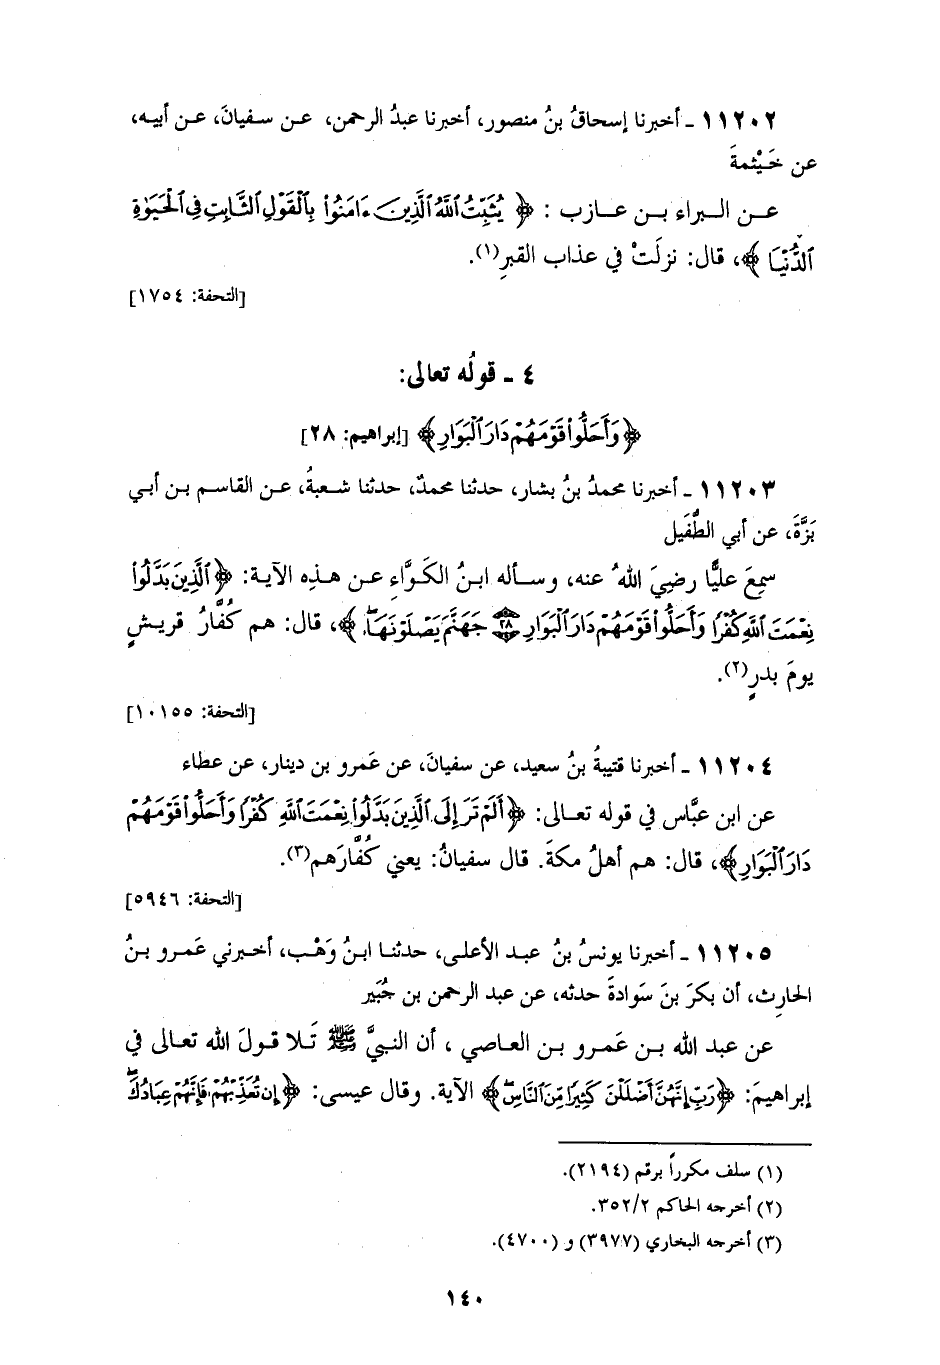 ١١٢٠٢ ـ أخبرنا إسحاقُ بنُ منصور، أخبرنا عبدُ الرحمن، عن سفيانَ، عن أبيه،
عن خَيْثمةَ
عن البراء بن عازب : ﴿ يُثَبِّتُ ٱللَّهُ ٱلَّذِينَ ءَامَنُوا۟ بِٱلْقَوْلِ ٱلثَّابِتِ فِى ٱلْحَيَوٰةِ
ٱلدُّنْيَا ﴾، قال: نزلَتْ في عذاب القبرِ(١).
[التحفة: ١٧٥٤]
٤ ـ قولُه تعالى:
﴿وَأَحَلُّوا۟ قَوْمَهُمْ دَارَ ٱلْبَوَارِ﴾ [إبراهيم: ٢٨]
١١٢٠٣ ـ أخبرنا محمدُ بنُ بشار، حدثنا محمدٌ، حدثنا شعبةُ، عن القاسم بن أبي
بَزَّةَ، عن أبي الطُّفَيل
سمِعَ عليًّا رضيَ اللهُ عنه، وسأله ابنُ الكَوَّاءِ عن هذِه الآية: ﴿ٱلَّذِينَ بَدَّلُوا۟
نِعْمَتَ ٱللَّهِ كُفْرًا وَأَحَلُّوا۟ قَوْمَهُمْ دَارَ ٱلْبَوَارِ ٢٨ جَهَنَّمَ يَصْلَوْنَهَا ۖ ﴾، قال: هم كُفَّارُ قريشٍ
يومَ بدرٍ(٢).
[التحفة: ١٠١٥٥]
١١٢٠٤ ـ أخبرنا قتيبةُ بنُ سعيد، عن سفيانَ، عن عَمرو بن دينار، عن عطاء
عن ابن عبَّاس في قوله تعالى: ﴿أَلَمْ تَرَ إِلَى ٱلَّذِينَ بَدَّلُوا۟ نِعْمَتَ ٱللَّهِ كُفْرًا وَأَحَلُّوا۟ قَوْمَهُمْ
دَارَ ٱلْبَوَارِ﴾، قال: هم أهلُ مكةَ. قال سفيانُ: يعني كُفَّارَهم(٣).
[التحفة: ٥٩٤٦]
١١٢٠٥ ـ أخبرنا يونسُ بنُ عبد الأعلى، حدثنا ابنُ وَهْب، أخبرني عَمرو بنُ
الحارِث، أن بكرَ بنَ سَوادةَ حدثه، عن عبد الرحمن بن جُبَير
عن عبد الله بن عَمرو بن العاصي ، أن النبيَّ ﷺ تَلا قولَ الله تعالى في
إبراهيمَ: ﴿رَبِّ إِنَّهُنَّ أَضْلَلْنَ كَثِيرًا مِّنَ ٱلنَّاسِ ۖ﴾ الآية. وقال عيسى: ﴿إِن تُعَذِّبْهُمْ فَإِنَّهُمْ عِبَادُكَ ۖ
(١) سلف مكرراً برقم (٢١٩٤).
(٢) أخرجه الحاكم ٣٥٢/٢.
(٣) أخرجه البخاري (٣٩٧٧) و (٤٧٠٠).
١٤٠